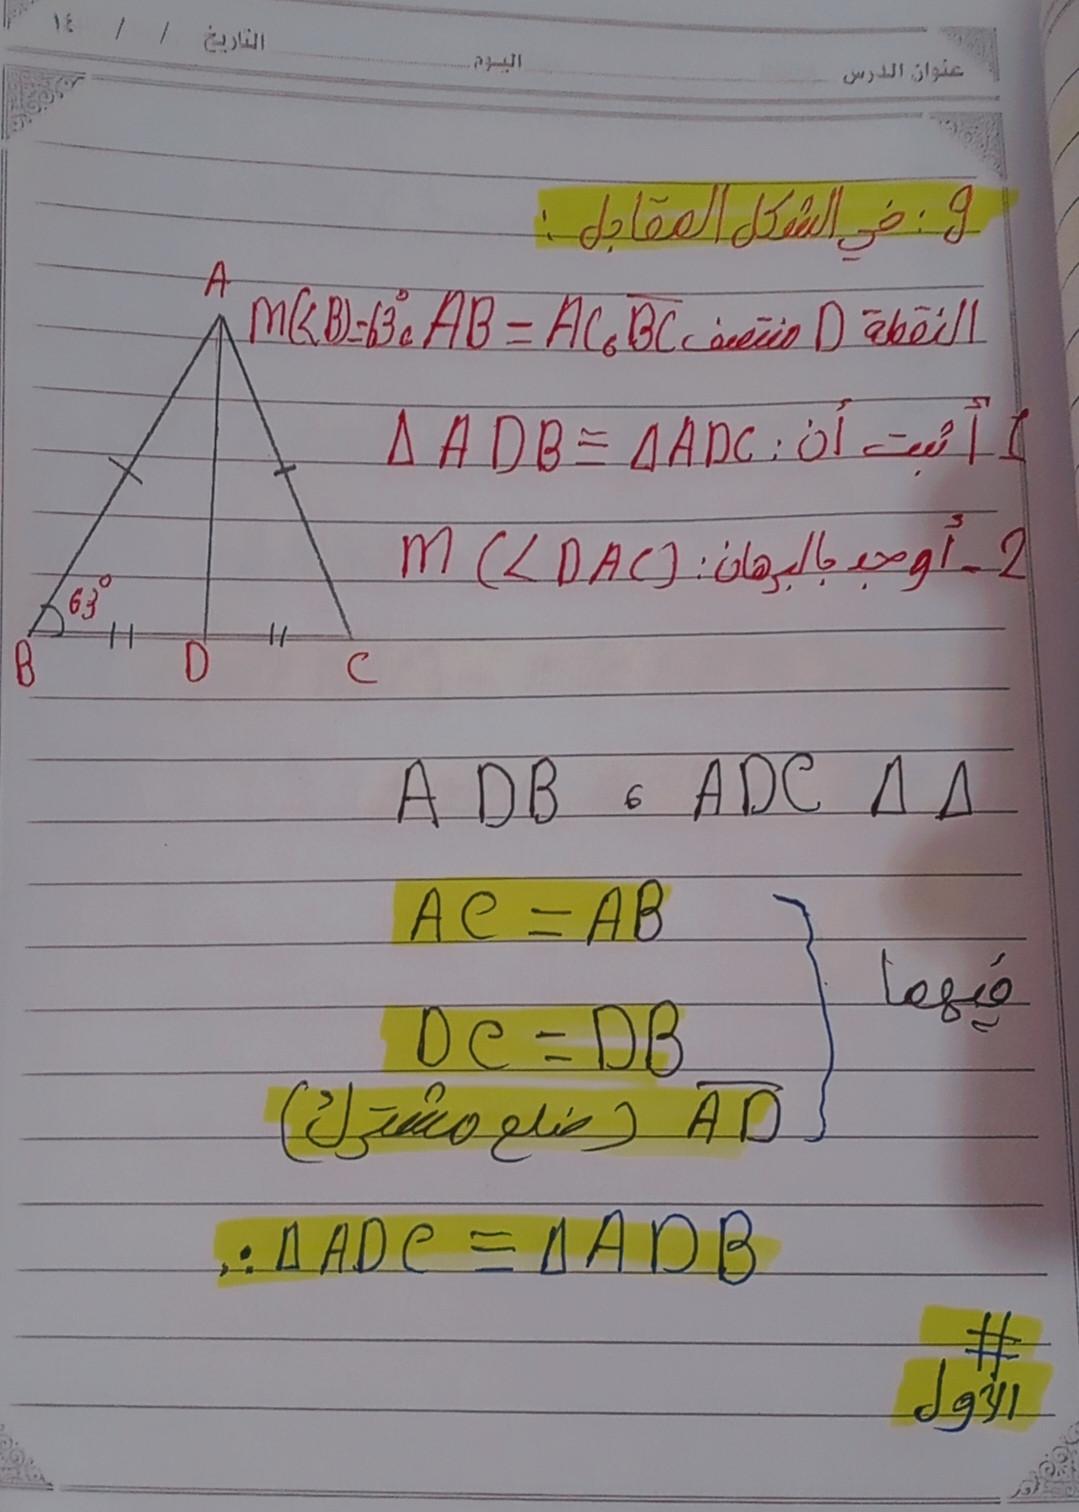 عنوان الدرس اليوم التاريخ / / ١٤
9: في الشكل المقابل:
النقطة D منتصف BC، AB = AC، m(<B)=63°
1 أثبت أن: Δ ADB ≅ Δ ADC
2- أوجد بالبرهان: m (< DAC)
A
63°
B D C
Δ Δ ADC ، ADB
AC = AB
فيهما
DC = DB
AD (ضلع مشترك)
∴ Δ ADC ≡ Δ ADB
#
الأول